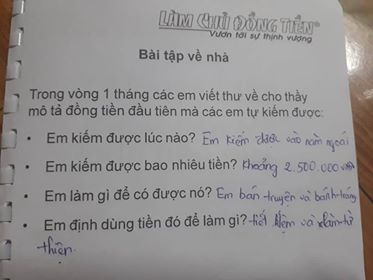 LÀM CHỦ ĐỒNG TIỀN®
Vươn tới sự thịnh vượng
Bài tập về nhà
Trong vòng 1 tháng các em viết thư về cho thầy
mô tả đồng tiền đầu tiên mà các em tự kiếm được:
• Em kiếm được lúc nào? Em kiếm được vào năm ngoái
• Em kiếm được bao nhiêu tiền? Khoảng 2.500.000
• Em làm gì để có được nó? Em bán truyện và bánh tráng
• Em định dùng tiền đó để làm gì? tiết kiệm và làm từ
thiện.